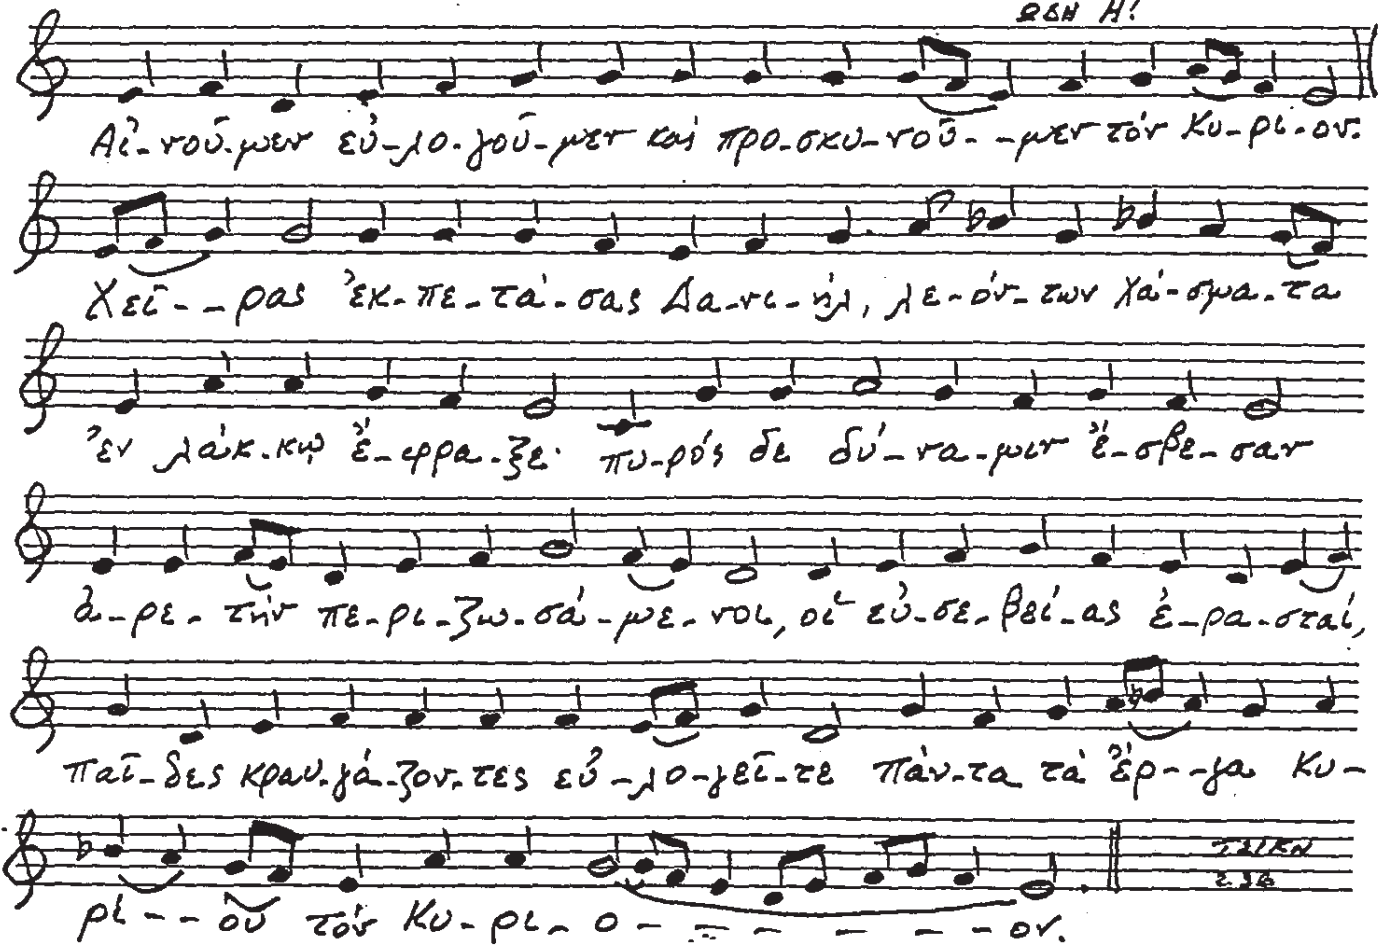 ΩΔΗ Η!
Αἰ-νοῦ-μεν εὐ-λο-γοῦ-μεν καί προ-σκυ-νοῦ--μεν τόν Κυ-ρι-ον.
Χεῖ--ρας ἐκ-πε-τά-σας Δα-νι-ήλ, λε-όν-των χά-σμα-τα
ἐν λάκ-κῳ ἔ-φρα-ξε· πυ-ρός δε δύ-να-μιν ἔ-σβε-σαν
ἀ-ρε-τήν πε-ρι-ζω-σά-με-νοι, οἱ εὐ-σε-βεί-ας ἐ-ρα-σταί,
παῖ-δες κραυ-γά-ζον-τες εὐ-λο-γεῖ-τε πάν-τα τά ἔρ--γα Κυ-
ρί--ου τόν Κυ-ρι-ο------ον.
ΤΣΙΚΝ